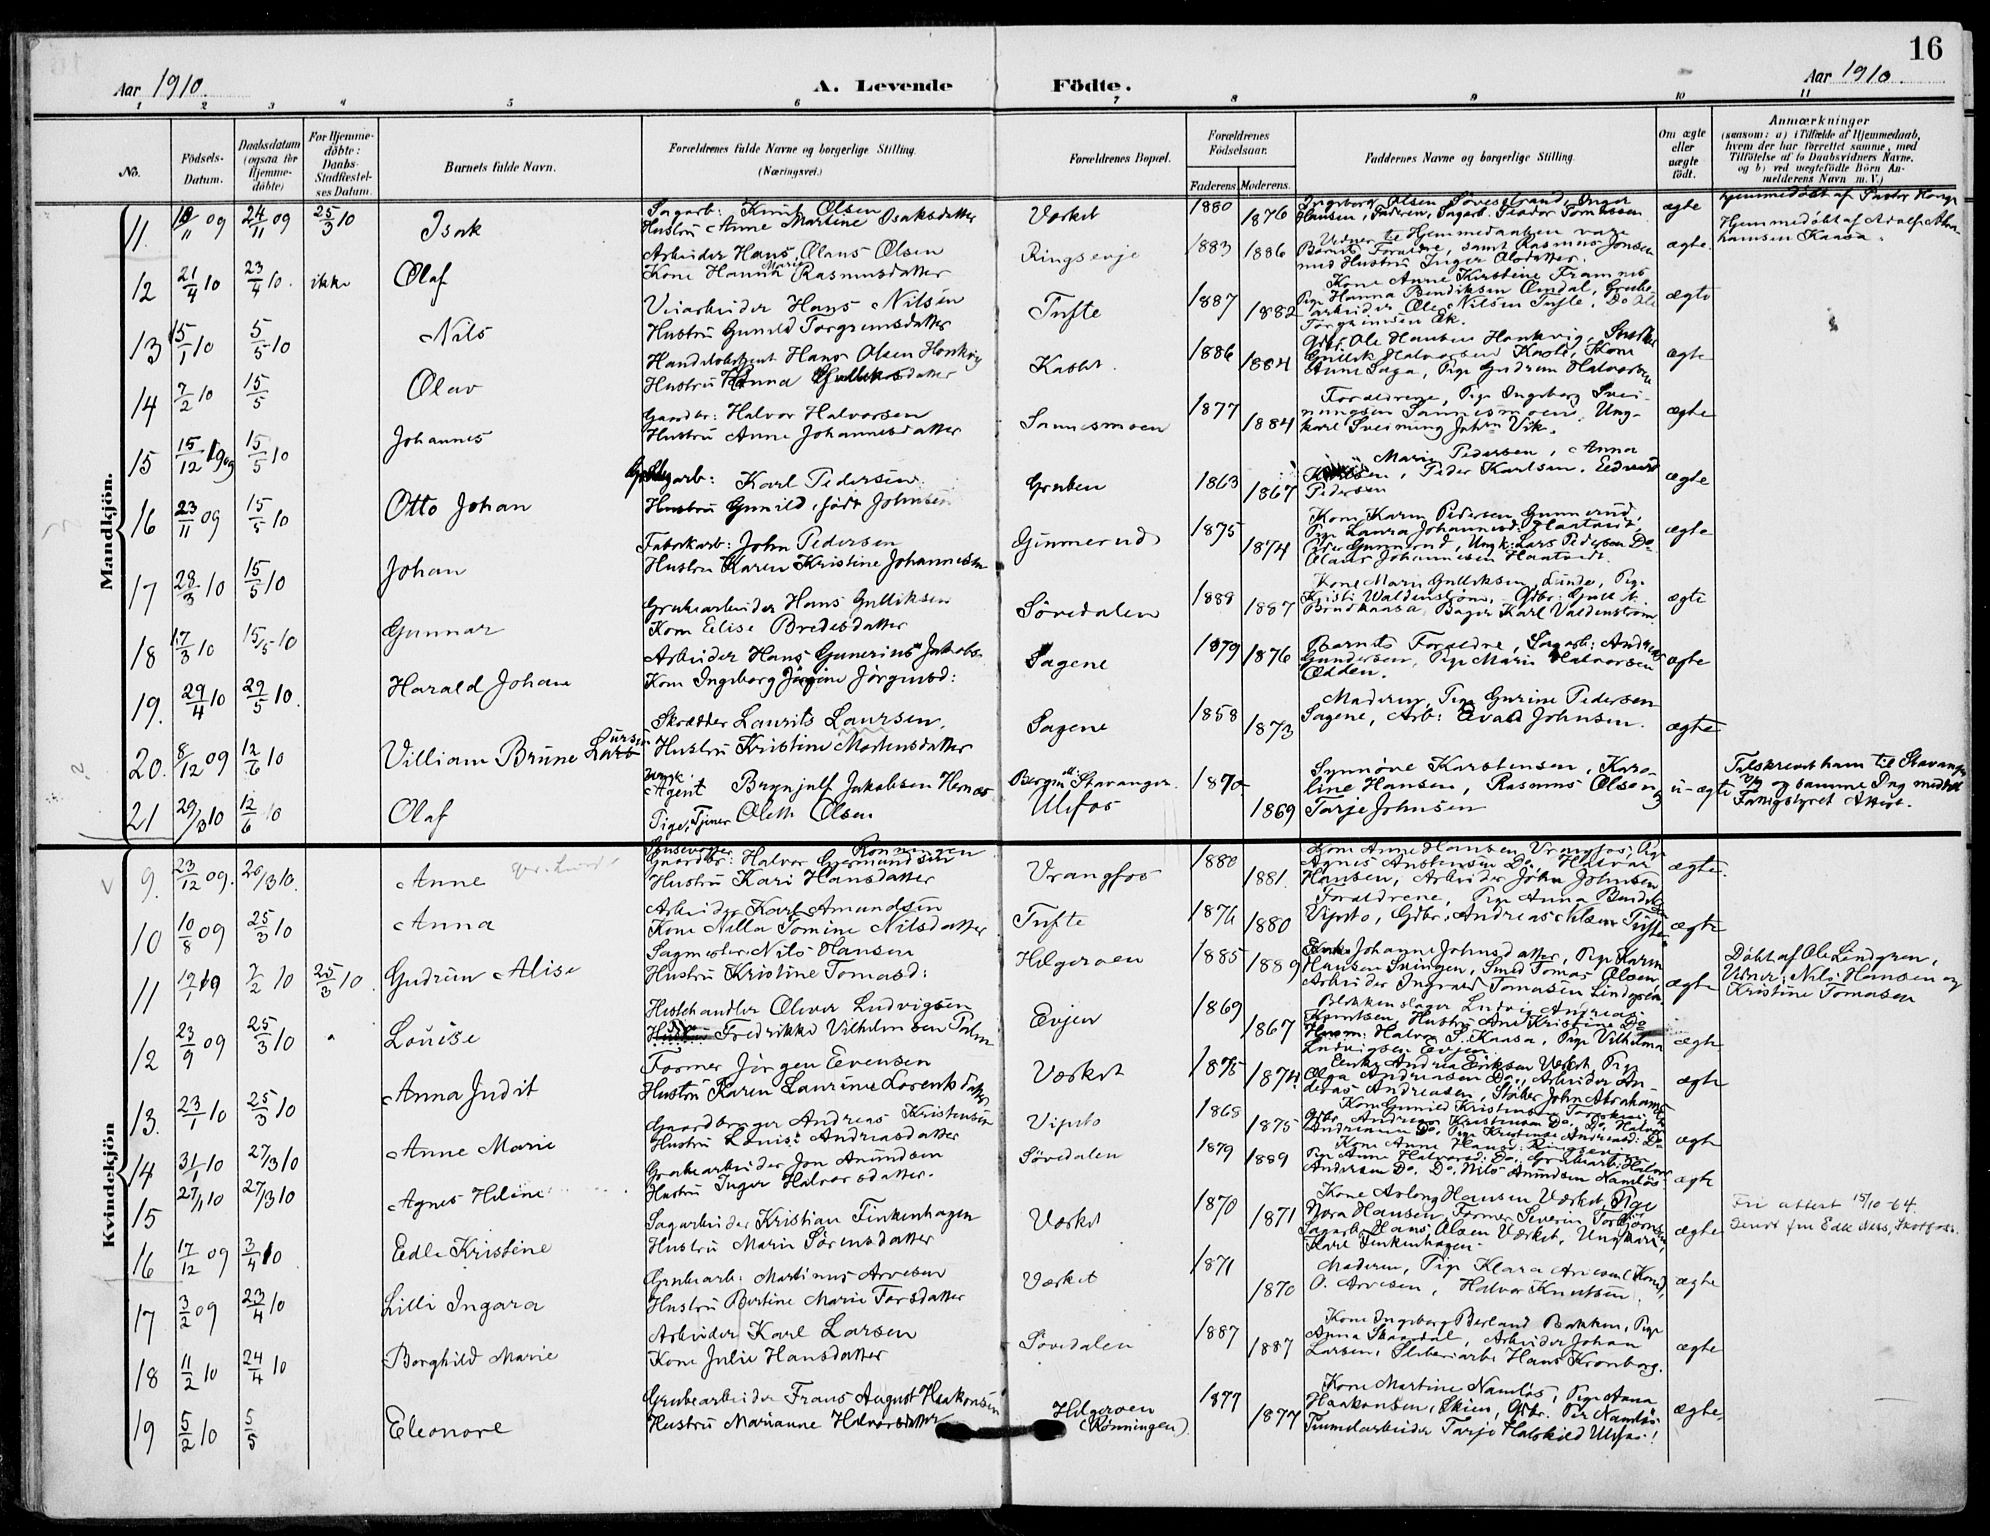 16
Aar 1910.
A. Levende
Födte.
Aar 1910.
1 2 3 4 5 6 7 8 9 10 11
No.
Födsels-Datum.
Daabsdatum (ogsaa for Hjemme-döbte)
For Hjemme-döbte: Daabs-Stadfæstel-ses Datum.
Barnets fulde Navn.
Forældrenes fulde Navne og borgerlige Stilling.
(Næringsvei.)
Forældrenes Bopæl.
Forældrenes Födselsaar.
Faderens. Moderens.
Faddernes Navne og borgerlige Stilling.
Om ægte eller uægte födt.
Anmærkninger
(saasom: a) i Tilfælde af Hjemmedaab, hvem der har forrettet samme, med Tilföielse af to Daabsvidners Navne, og b) ved uægtefödte Börn An-melderens Navn m. V.)
Mandkjön.
11. 24/11 09 25/3 10 Isak
Sagarb: Knut Olsen
Hustru Anne Martine Isaksdatter
Værket 1880 1876 ægte
Hansen, Faderen, Sagarb.
12 21/4 10 23/4 10. ikke Olaf
Arbeider Hans Olaus Olsen
Kone Hanna Marie Rasmusdatter
Ringsevje 1883 1886
Barnets Forældre, samt Rasmus Jensen
med Hustru Inger Olsdatter.
ægte.
Hjemmedöbt af Adolf Abra-
hamsen Kaasa.
13 15/1 10 5/5 10 Nils
Veiarbeider Hans Nilsen
Hustru Gunild Torgrimsdatter
Tufte 1887 1882
Kone Anne Kirstine Framnes
Pige Hanna Bendiksen Omdal, Grube-
arbeider Ole Nilsen Tufte,
Torgrimsen Ek.
ægte
14 7/2 10 15/5 Olav
Handelsbetjent Hans Olsen Honkvig
Hustru Anna Gulliksdatter
Kastet. 1886 1884
Gdbr. Ole Hansen Honkvig,
Anne Saga, Pige Gudrun Halvorsen
ægte
15 15/12 1909 15/5 10 Johannes
Gaardbr: Halvor Halvorsen
Hustru Anne Johannesdatter
Sannesmoen 1877 1884
Forældrene, Pige Ingeborg Svei-
nungsen Sannesmoen, Ung-
karl Sveinung Johsen Vik.
ægte
16 23/11 09 15/5 10 Otto Johan
Karl Pedersen
Hustru Gunild, födt Johnsen
Gruben 1863 1867
Marie Pedersen, Anna
Karlsen, Peder Karlsen, Edvard
Pedersen
ægte
17 28/3 10 15/5 10 Johan
Fabrikarb: John Pedersen
Hustru Karen Kristine Johannesen
Gunnerud 1875 1874
Kone Karen Pedersen Gunnerud,
Pige Laura Johannesd: Haatvedt,
Peder Gunnerud, Ungk: Lars Pedersen Do
Olaus Johannesen Haatvedt.
ægte
18 17/3 10 15/5 10 Gunnar
Grubearbeider Hans Gulliksen
Kone Elise Bredesdatter
Sövedalen 1888 1887
Kone Marie Gulliksen, Lunde, Pige
Kristi Waldenström,
Brudkaasa, Bager Karl Valdenström
ægte
19. 29/4 10 29/5 10. Harald Johan
Arbeider Hans Gunerius Jakobs.
Kone Ingeborg Jörgine Jörginsd:
Sagene 1879 1876
Barnets Forældre, Sagarb: Andreas
Gundersen, Pige Marie Halvorsen
Odden.
ægte
20. 8/12 09 12/6 10 Villiam Brune Laursen
Skrædder Laurits Laursen,
Hustru Kristine Mortensdatter
Sagene 1858 1873
Moderen, Pige Gurine Pedersen
Sagene, Arb: Evald Johnsen.
ægte
21 29/3 10 12/6 10 Olaf
Ungk. Agent Brynjulf Jakobsen Hernæs
Pige, Tjener Oleth Olsen
Bergen el. Stavanger. Ulefos 1870 1869
Synnöve Karstensen, Karo-
line Hansen, Rasmus Olsen og
Tarje Johnsen
u-ægte
Tilskrevet ham til Stavanger
og samme Dag meddelt
Fattigstyret Attest.
Kvindekjön
9. 23/12 09. 20/3 10. Anne
Slusevogter Rönningen
Gaardbr: Halvor Germundsen
Hustru Kari Hansdatter
Vrangfos 1880 1881.
Kone Anne Hansen Vrangfos, Pige
Agnes Anstensen Do, Halvor
Hansen, Arbeider John Johnsen
ægte.
10 10/8 09 25/3 10 Anna
Arbeider Karl Amundsen
Kone Nilla Tomine Nilsdatter
Tufte 1876 1880
Forældrene, Pige Anna Bendiksen
Vipeto, Gdbr: Andreas Nilsen Tufte.
ægte
11 7/2 10 25/3 10. Gudrun Alise
Sagmester Nils Hansen
Hustru Kristine Tomasd:
Helgeroen 1885 1889
Johanne Johnsdatter, Pige Karen
Hansen Svingen, Smed Tomas Olsen,
Arbeider Ingvald Tomasen Lindgren
ægte
Döbt af Ole Lindgren,
Vidner: Nils Hansen og
Kristine Tomasen
12 23/9 09 25/3 10 Louise
Hestehandler Oliver Ludvigsen
Fredrikke Vilhelmsen Palm
Evjen 1869 1867
Blikkenslager Ludvig Andreas
Knutsen, Hustru Ane Kristine Do
Husm: Halvor S. Kaasa, Pige Vilhelma
Ludvigsen Evjen
ægte
13. 23/1 10 25/3 10 Anna Judit
Former Jörgen Evensen
Hustru Karen Laurine Lorentsdatter
Værket 1875 1874.
Enke Andrea Eriksen Værket, Pige
Olga Andreasen Do, Arbeider An-
dreas Andreasen, Sliber John Abrahams
ægte
14 31/1 10 27/3 10 Anne Marie
Gaardbruger Andreas Kristensen
Hustru Louise Andreasdatter
Vipeto 1868 1875
Kone Gunild Kristensen
Gdbr. Andreas Kristensen Do, Do Halvor
Andreasen Do, Pige Kristense Andreasd: Do
ægte
15 27/1 10 27/3 10 Agnes Heline
Grubearbeider Jon Amundsen
Hustru Inger Halvorsdatter.
Sövedalen 1879 1889
Kone Anne Hansd: Ringsevje,
Pige Anne Halvorsd: Do, Grubearb: Halvor
Andersen Do, Do. Nils Amundsen Namlös.
ægte
16 17/12 09 3/4 10. Edle Kristine
Sagarbeider Kristian Finkenhagen
Hustru Marie Sörensdatter
Værket 1870 1871
Kone Aslaug Hansen Værket, Pige
Nora Hansen, Former Severin Torbjörnsen
Sagarb: Hans Olsen Værket, Ungkarl
Karl Finkenhagen.
ægte
Fri attest 15/10-64.
Sendt fru Edle Næss, Skotfoss.
17 3/2 09 23/4 10 Lilli Ingara
Grubearb: Martinus Arvesen
Hustru Bertine Marie Torsdatter
Værket 1871 1870
Moderen, Pige Klara Arvesen (Kone),
O. Arvesen, Halvor Knutsen.
ægte
18 11/2 10 24/4 10 Borghild Marie
Arbeider Karl Larsen
Kone Julie Hansdatter
Sövedalen 1887 1887
Kone Ingeborg Berland Bakken, Pige
Anna Skaardal, Arbeider Johan
Larsen, Sliberiarb: Hans Kronborg.
ægte
19 5/2 10 5/5 Eleonore
Grubearbeider Frans August Haakonsen
Hustru Marianne Halvorsdatter
Helgeroen (Rönningen). 1877 1877
Kone Martine Namlös, Pige Anna
Haakonsen, Skien, Gdbr. Per Namlös
Tömmerarbeider Tarje Halskild Ulefos!
ægte.